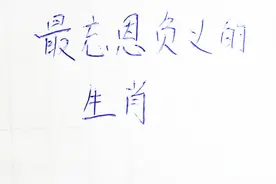 最忘恩负义的
生肖